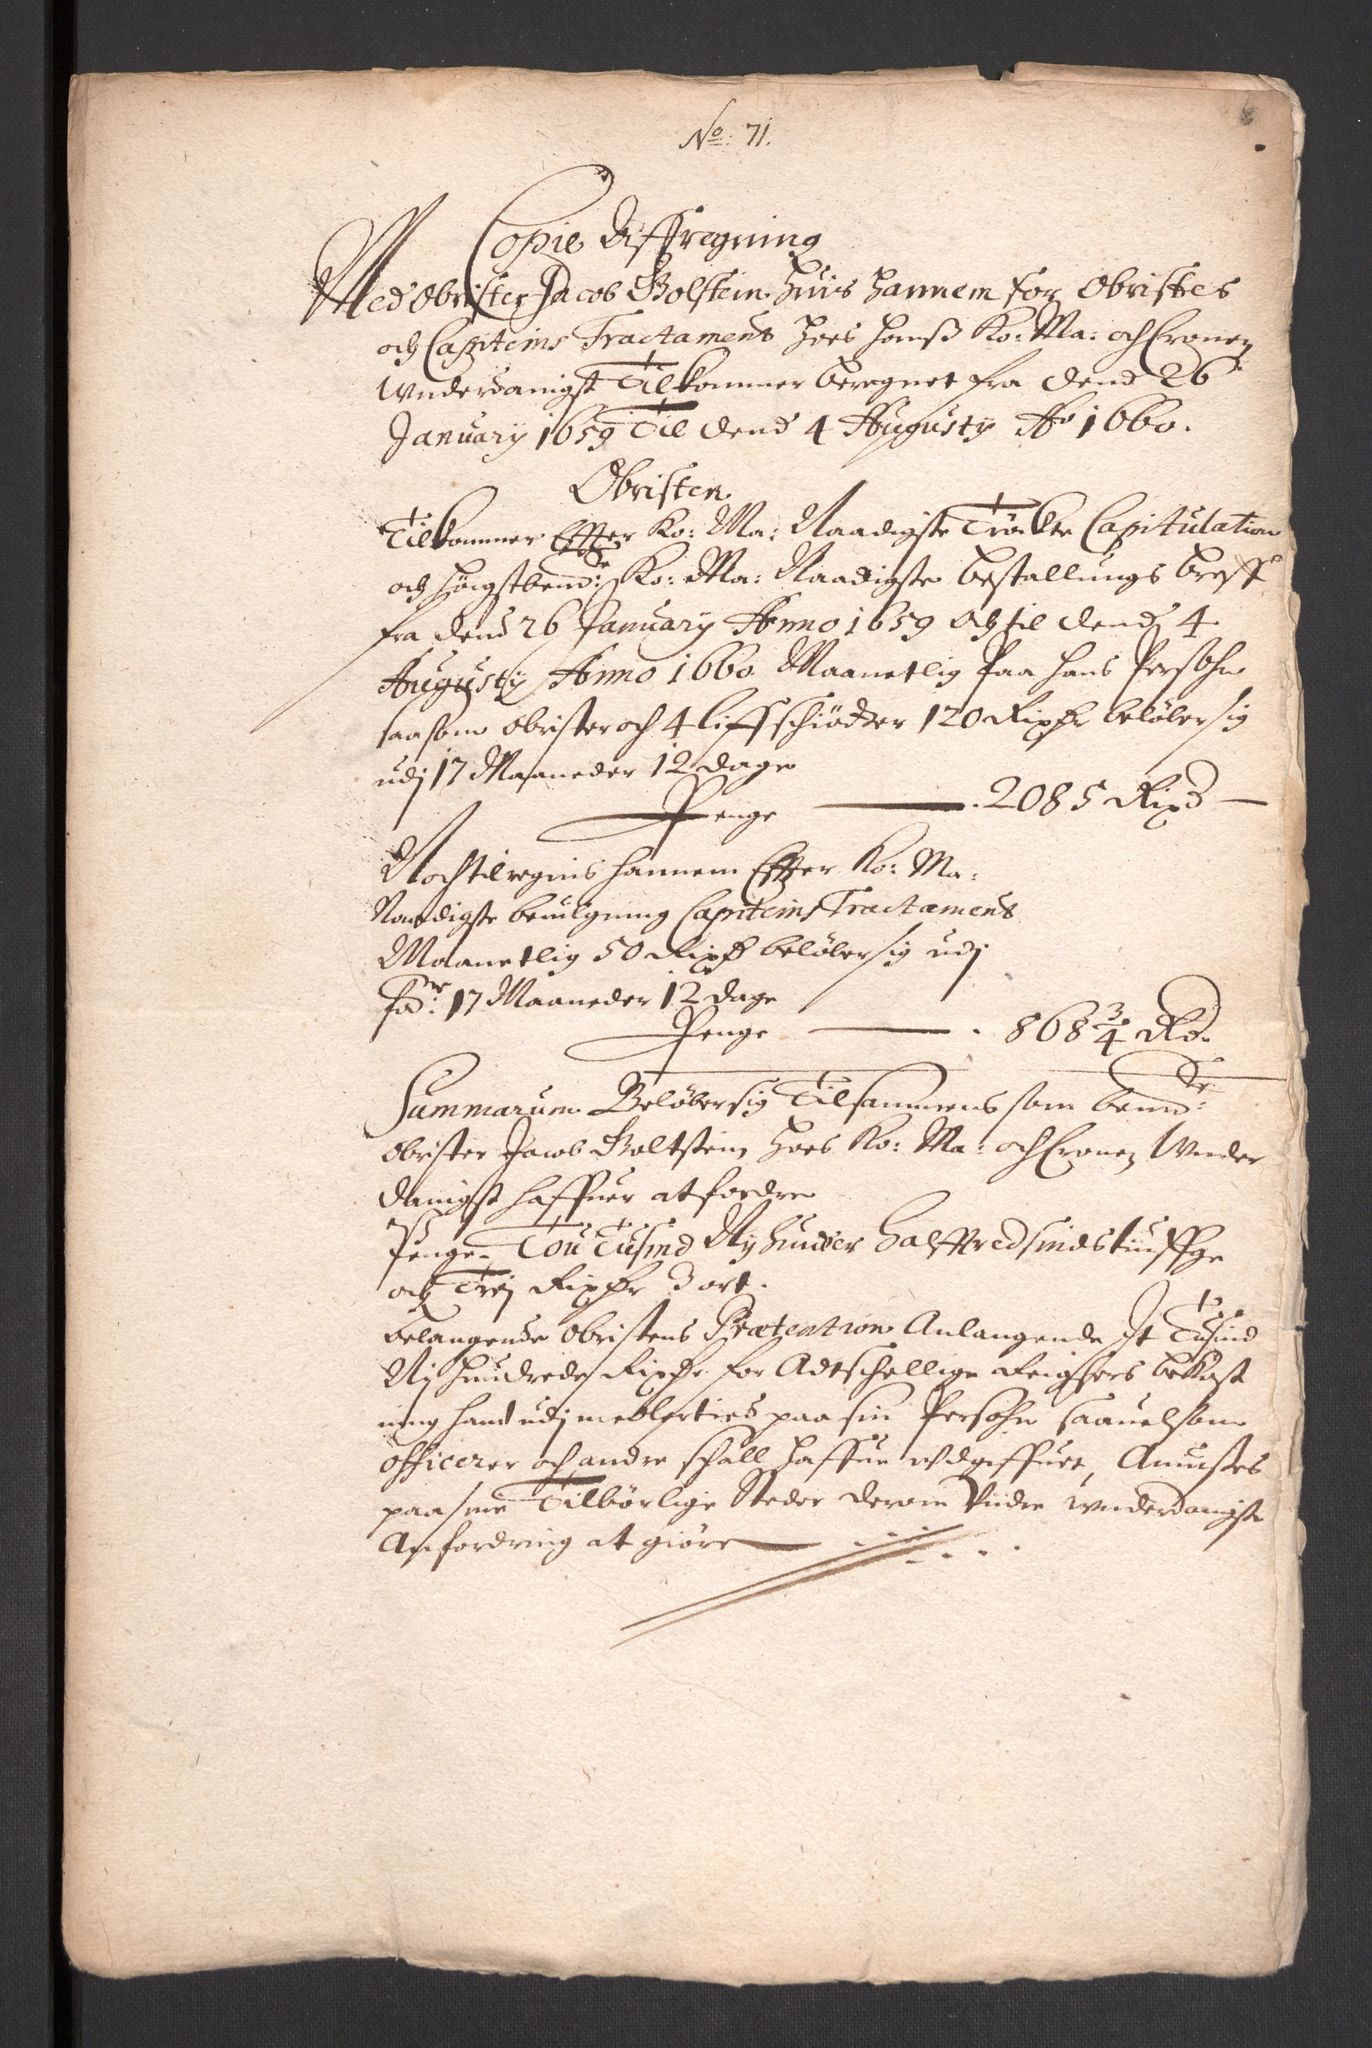 No: 71.
Copie Affregning
Med Obrister Jacob Bolstein huis hannem for Obristes
och Capiteins Tractament hoes hanß Ko: Ma: och Cronen
Vnderdanigst Tilkommer beregnet fra dend 26
January 1659 Til dend 4 Augusty Ao 1660.
Obristen
Tilkommer Effter Ko: Ma: Naadigste Capitulation
och høigstbemd:te Ko: Ma: Naadigste bestallungs breff
fra dend 26 January Anno 1659 och til dend 4
Augusty Anno 1660 Maanetlig paa hans Persohn
saasom Obrister och 4 liffschiøtter 120 Rixdr beløber sig
udj 17 Maaneder 12 dage
Penge 2085 Rixd
Noch tilregnis hannem Effter Ko: Ma:
Naadigste beuilgning Capiteins Tractament
Maanetlig 50 Rixdr beløber sig udj
for:ne 17 Maaneder 12 dage
Penge 868 3/4 Rd.
Summarum Beløber sig Tilsammens som bemd:te
Obrister Jacob Boltstein hoes Ko: Ma: och Cronen Vnder
danigst haffuer at fordre
Penge. Tou Tusind Ny hunder halffredsindstiuffge
och Trej Rixdr 3 ort.
Belangende Obristens Prætention Anlangende It Tusind
Nj hundrede Rixdr for Adtschellige Reigsers bekost
ning hand udj medlertied paa sin Persohn saauelsom
officerer och andre schall haffue vdgiffuet, Anuistes
paa sine Tilbørlige Steder derom Viidre Vnderdanigste
Anfordring at giøre